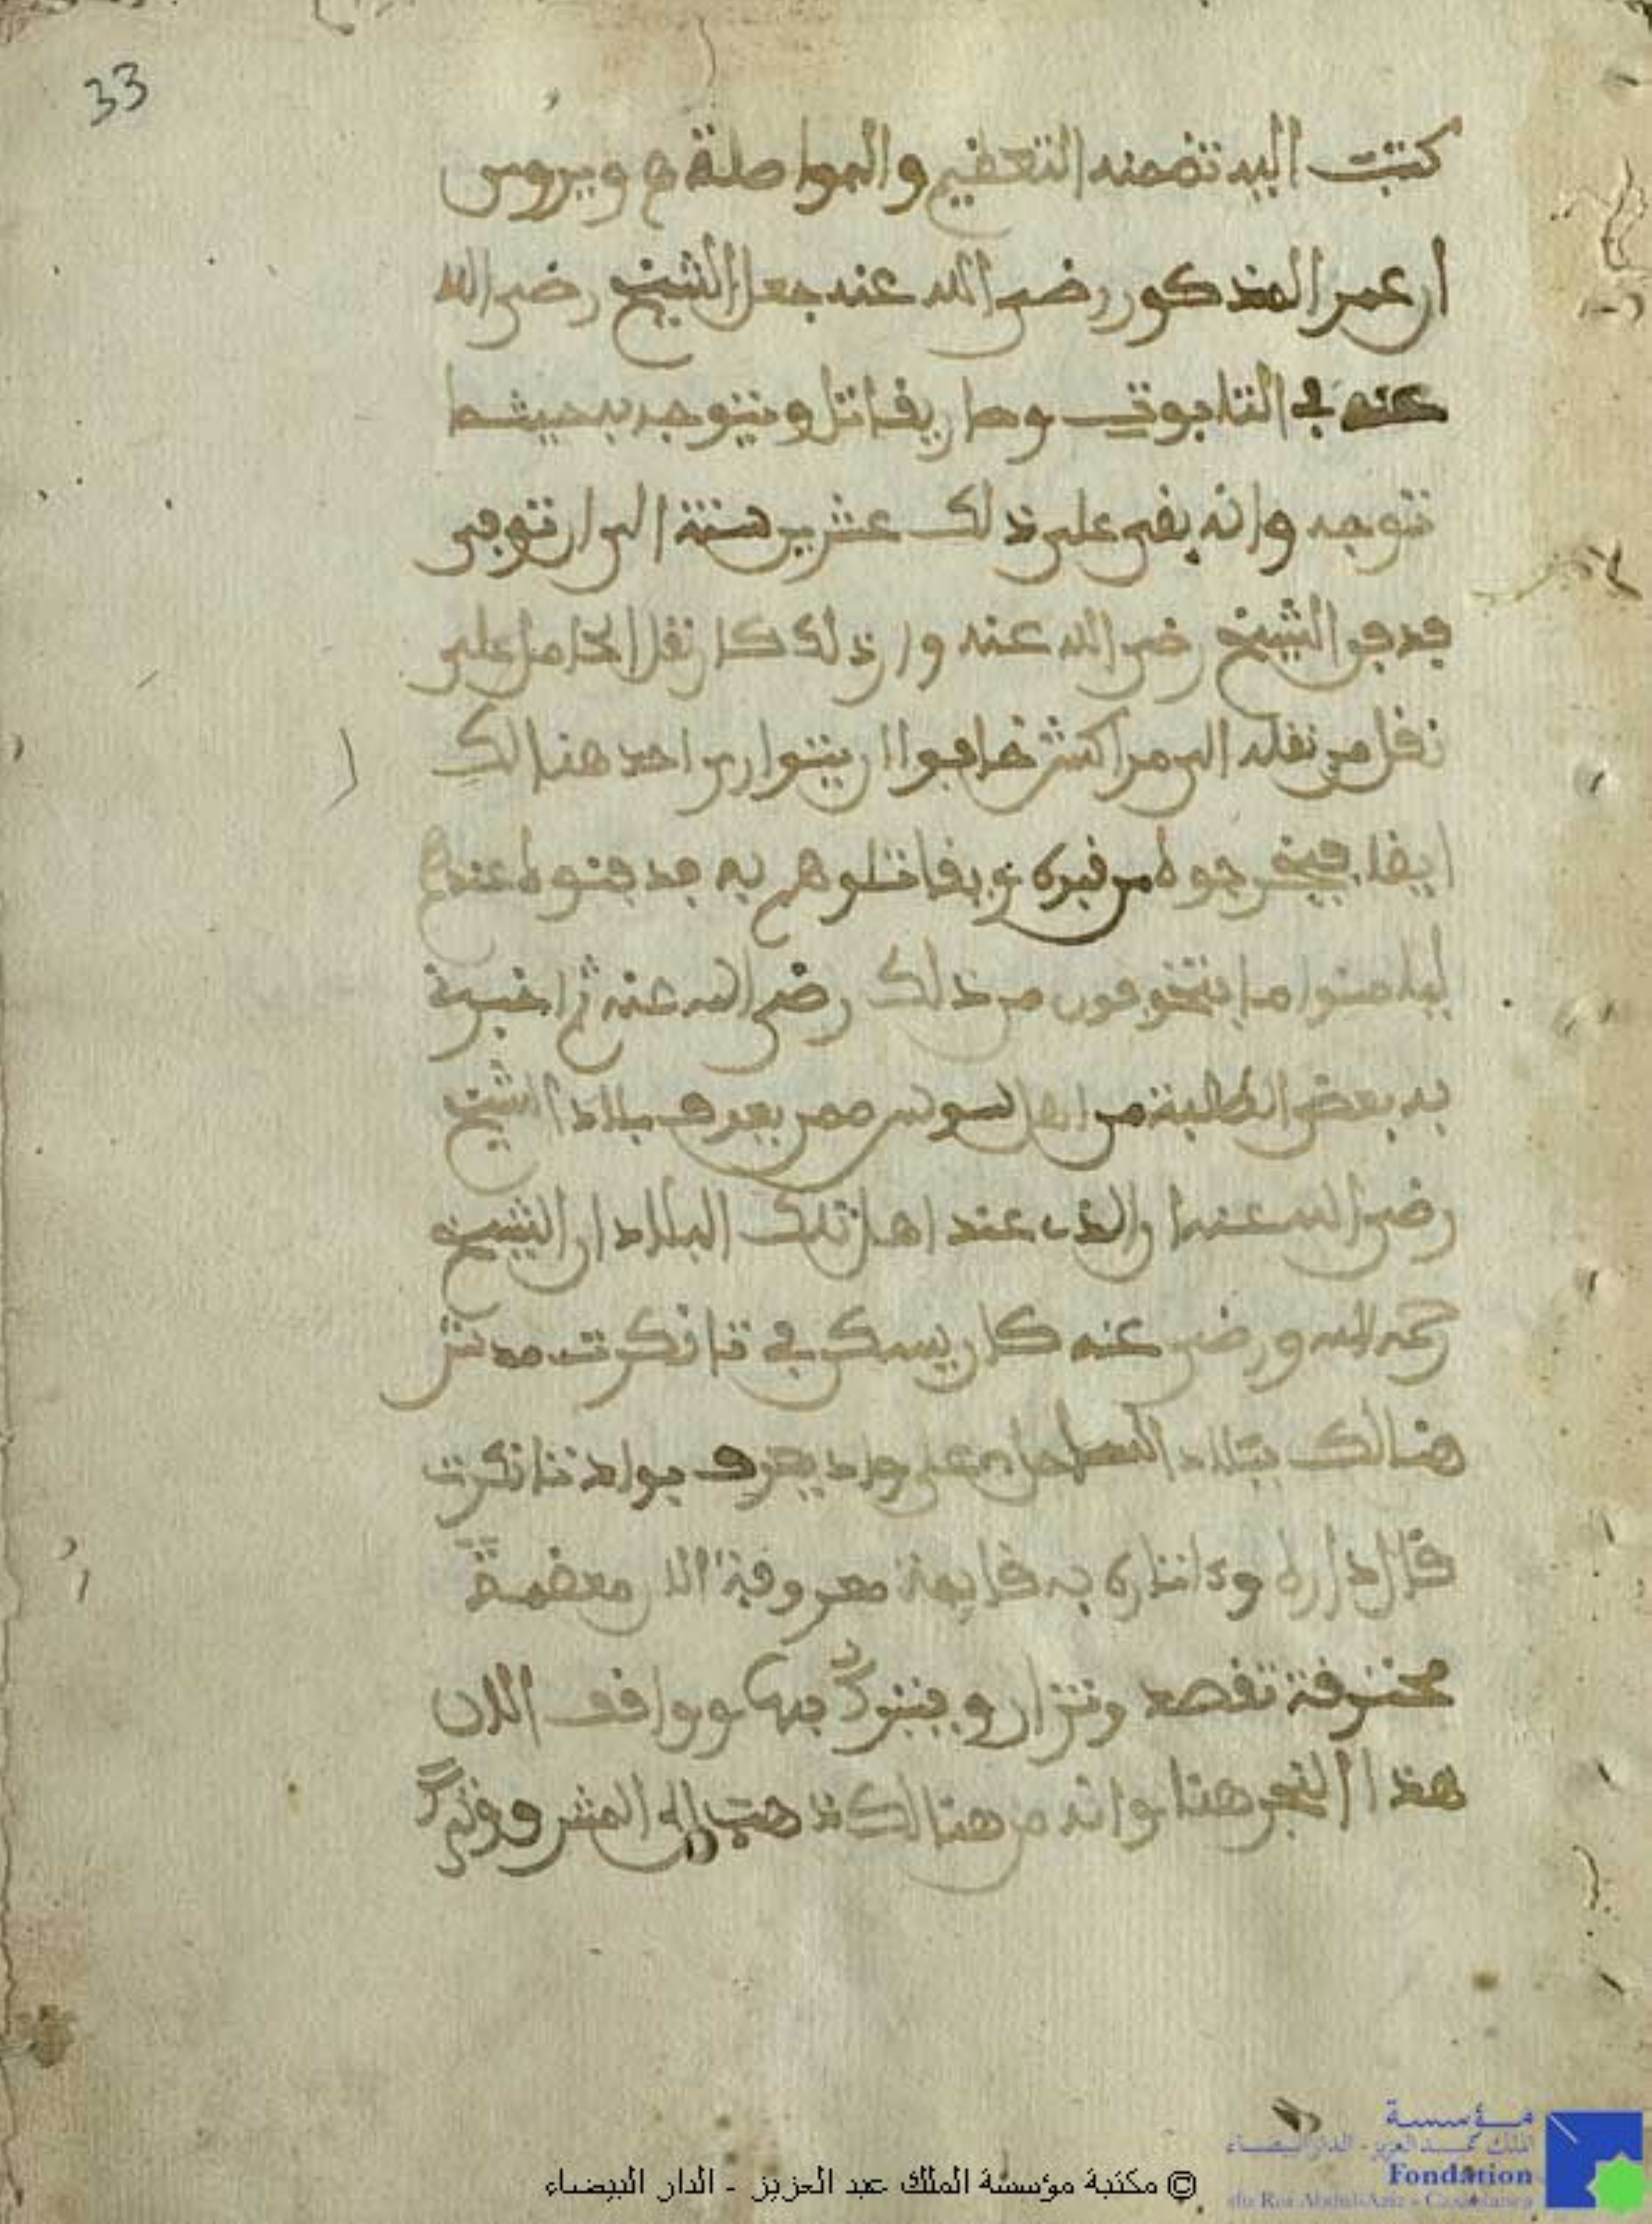 33
كتبت اليه تضمنه التعظيم والمواصلة ويروى
ان عمر المذكور رضى الله عنه جعل الشيخ رضى الله
عنه في التابوت وصار يقاتل ويتوجه به حيثما
توجه وانه بقى على ذلك عشرين سنة الى ان توفى
فدفن الشيخ رضى الله عنه وان ذلك كان نقل الحامل على
نقل من نقله الى مراكش خافوا ان يثوارن احد هنالك
ايضا فيخرجوه من قبره يقاتلوهم به فدفنوه عندهم
ليامنوا ما يتخوفون من ذلك رضى الله عنه ثم اخبرني
به بعض الطلبة من اهل سوس ممن يعرف بلاد الشيخ
رضى الله عنه والذى عند اهل تلك البلاد ان الشيخ
رحمه الله ورضى عنه كان يسكن في تانكرت مدشر
هنالك ببلاد الساحل على واد يعرف بواد تانكرت
قال داره وءاثاره به قايمة معروفة معضمة
محترفة تقصد وتزار ويتبرك بها ووافف الان
هذا النجر هنا وانه من هنالك ذهب الى المشرق
© مكتبة مؤسسة الملك عبد العزيز - الدار البيضاء
مؤسسة
الملك عبد العزيز - الدار البيضاء
Fondation
du Roi Abdul-Aziz - Casablanca